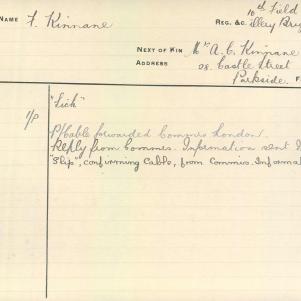 10th Field
NAME F. Kinnane
REG. &C. Tilley Brig
NEXT OF KIN Mr A. C. Kinnane
ADDRESS 28. Castle Street
Parkside. F
"Sick"
P/Cable forwarded Commis London.
Reply from Commis. Information sent
"Slip", confirming Cable, from Commis. Informat